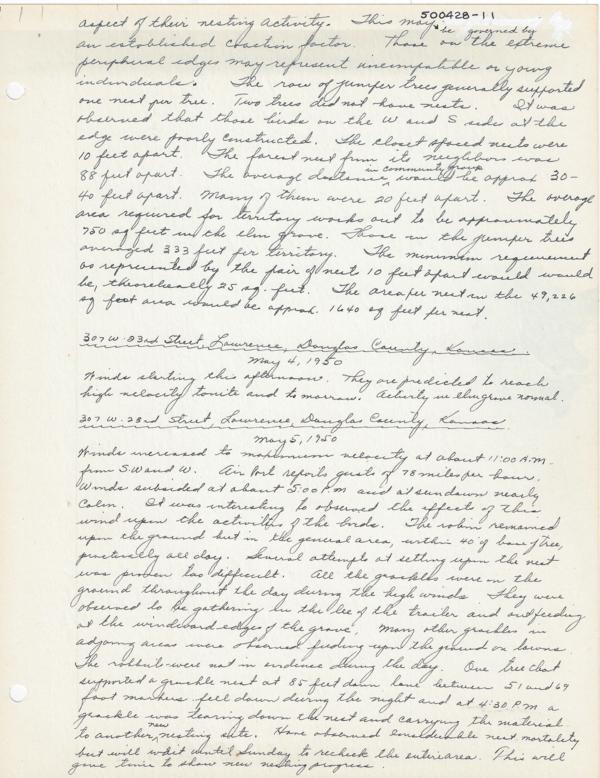 500428-11
aspect of their nesting activity. This may be governed by
an established coaction factor. Those on the extreme
peripheral edges may represent incompatible or young
individuals. The row of juniper trees generally supported
one nest per tree. Two trees did not have nests. It was
observed that those birds on the W and S side at the
edge were poorly constructed. The closet spaced nests were
10 feet apart. The farest nest from its neighbor was
88 feet apart. The average distance in community group would be approx 30-
40 feet apart. Many of them were 20 feet apart. The average
area required for territory works out to be approximately
750 sq feet in the elm grove. Those in the juniper trees
averaged 333 feet per territory. The minimum requirement
as represented by the pair of nests 10 feet apart would would
be, theoretically 25 sq. feet. The area per nest in the 49,226
sq foot area would be approx. 1640 sq feet per nest.
307 W. 23rd Street, Lawrence, Douglas County, Kansas.
May 4, 1950
Winds starting this afternoon. They are predicted to reach
high velocity tonite and tomorrow. Activity in elm grove normal.
307 W. 23rd Street, Lawrence, Douglas County, Kansas
May 5, 1950
Winds increased to maximum velocity at about 11:00 A.M.
from S.W and W. Air Port reports gusts of 78 miles per hour.
Winds subsided at about 5:00 P.M and at sundown nearly
calm. It was interesting to observed the effects of this
wind upon the activities of the birds. The robin remained
upon the ground but in the general area, within 40' of base of tree,
practically all day. Several attempts at setting upon the nest
was proven too difficult. All the grackles were on the
ground throughout the day during the high winds. They were
observed to be gathering in the lee of the trailer and out feeding
at the windward edges of the grove. Many other grackles in
adjoing areas were observed feeding upon the ground on lawns.
The robins were not in evidence during the day. One tree that
supported a grackle nest at 85 feet down lane between 51 and 69
foot markers fell down during the night and at 4:30 P.M a
grackle was tearing down the nest and carrying the material
to another new nesting site. Have observed considerable nest mortality
but will wait until Sunday to recheck the entire area. This will
give time to show new nesting progress.